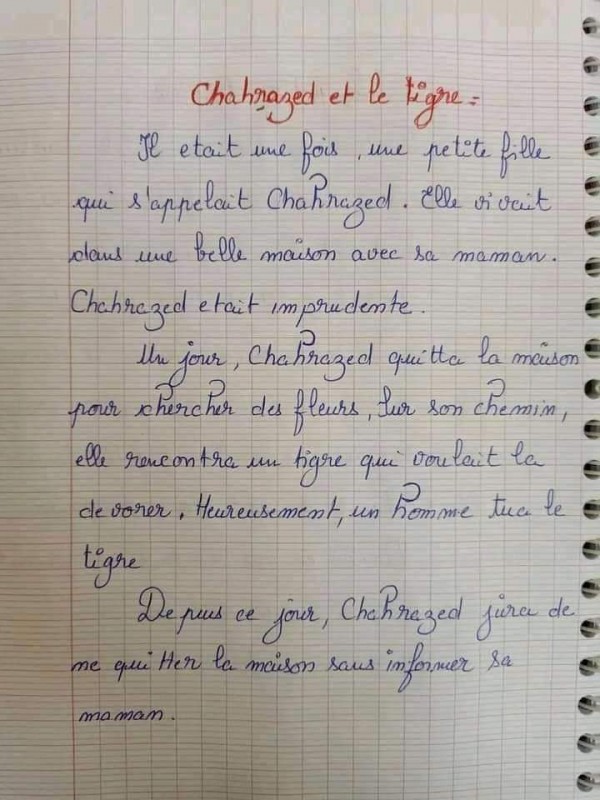 Chahrazed et le tigre :
Il etait une fois, une petite fille
qui s'appelait Chahrazed. Elle vivait
dans une belle maison avec sa maman.
Chahrazed etait imprudente.
Un jour, Chahrazed quitta la maison
pour chercher des fleurs, Sur son chemin,
elle rencontra un tigre qui voulait la
devorer. Heureusement, un homme tua le
tigre
Depuis ce jour, Chahrazed jura de
ne quitter la maison sans informer sa
maman.